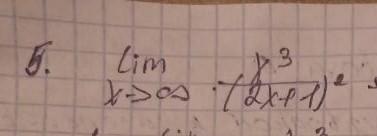 5. lim x³
x→∞ (2x+1)²